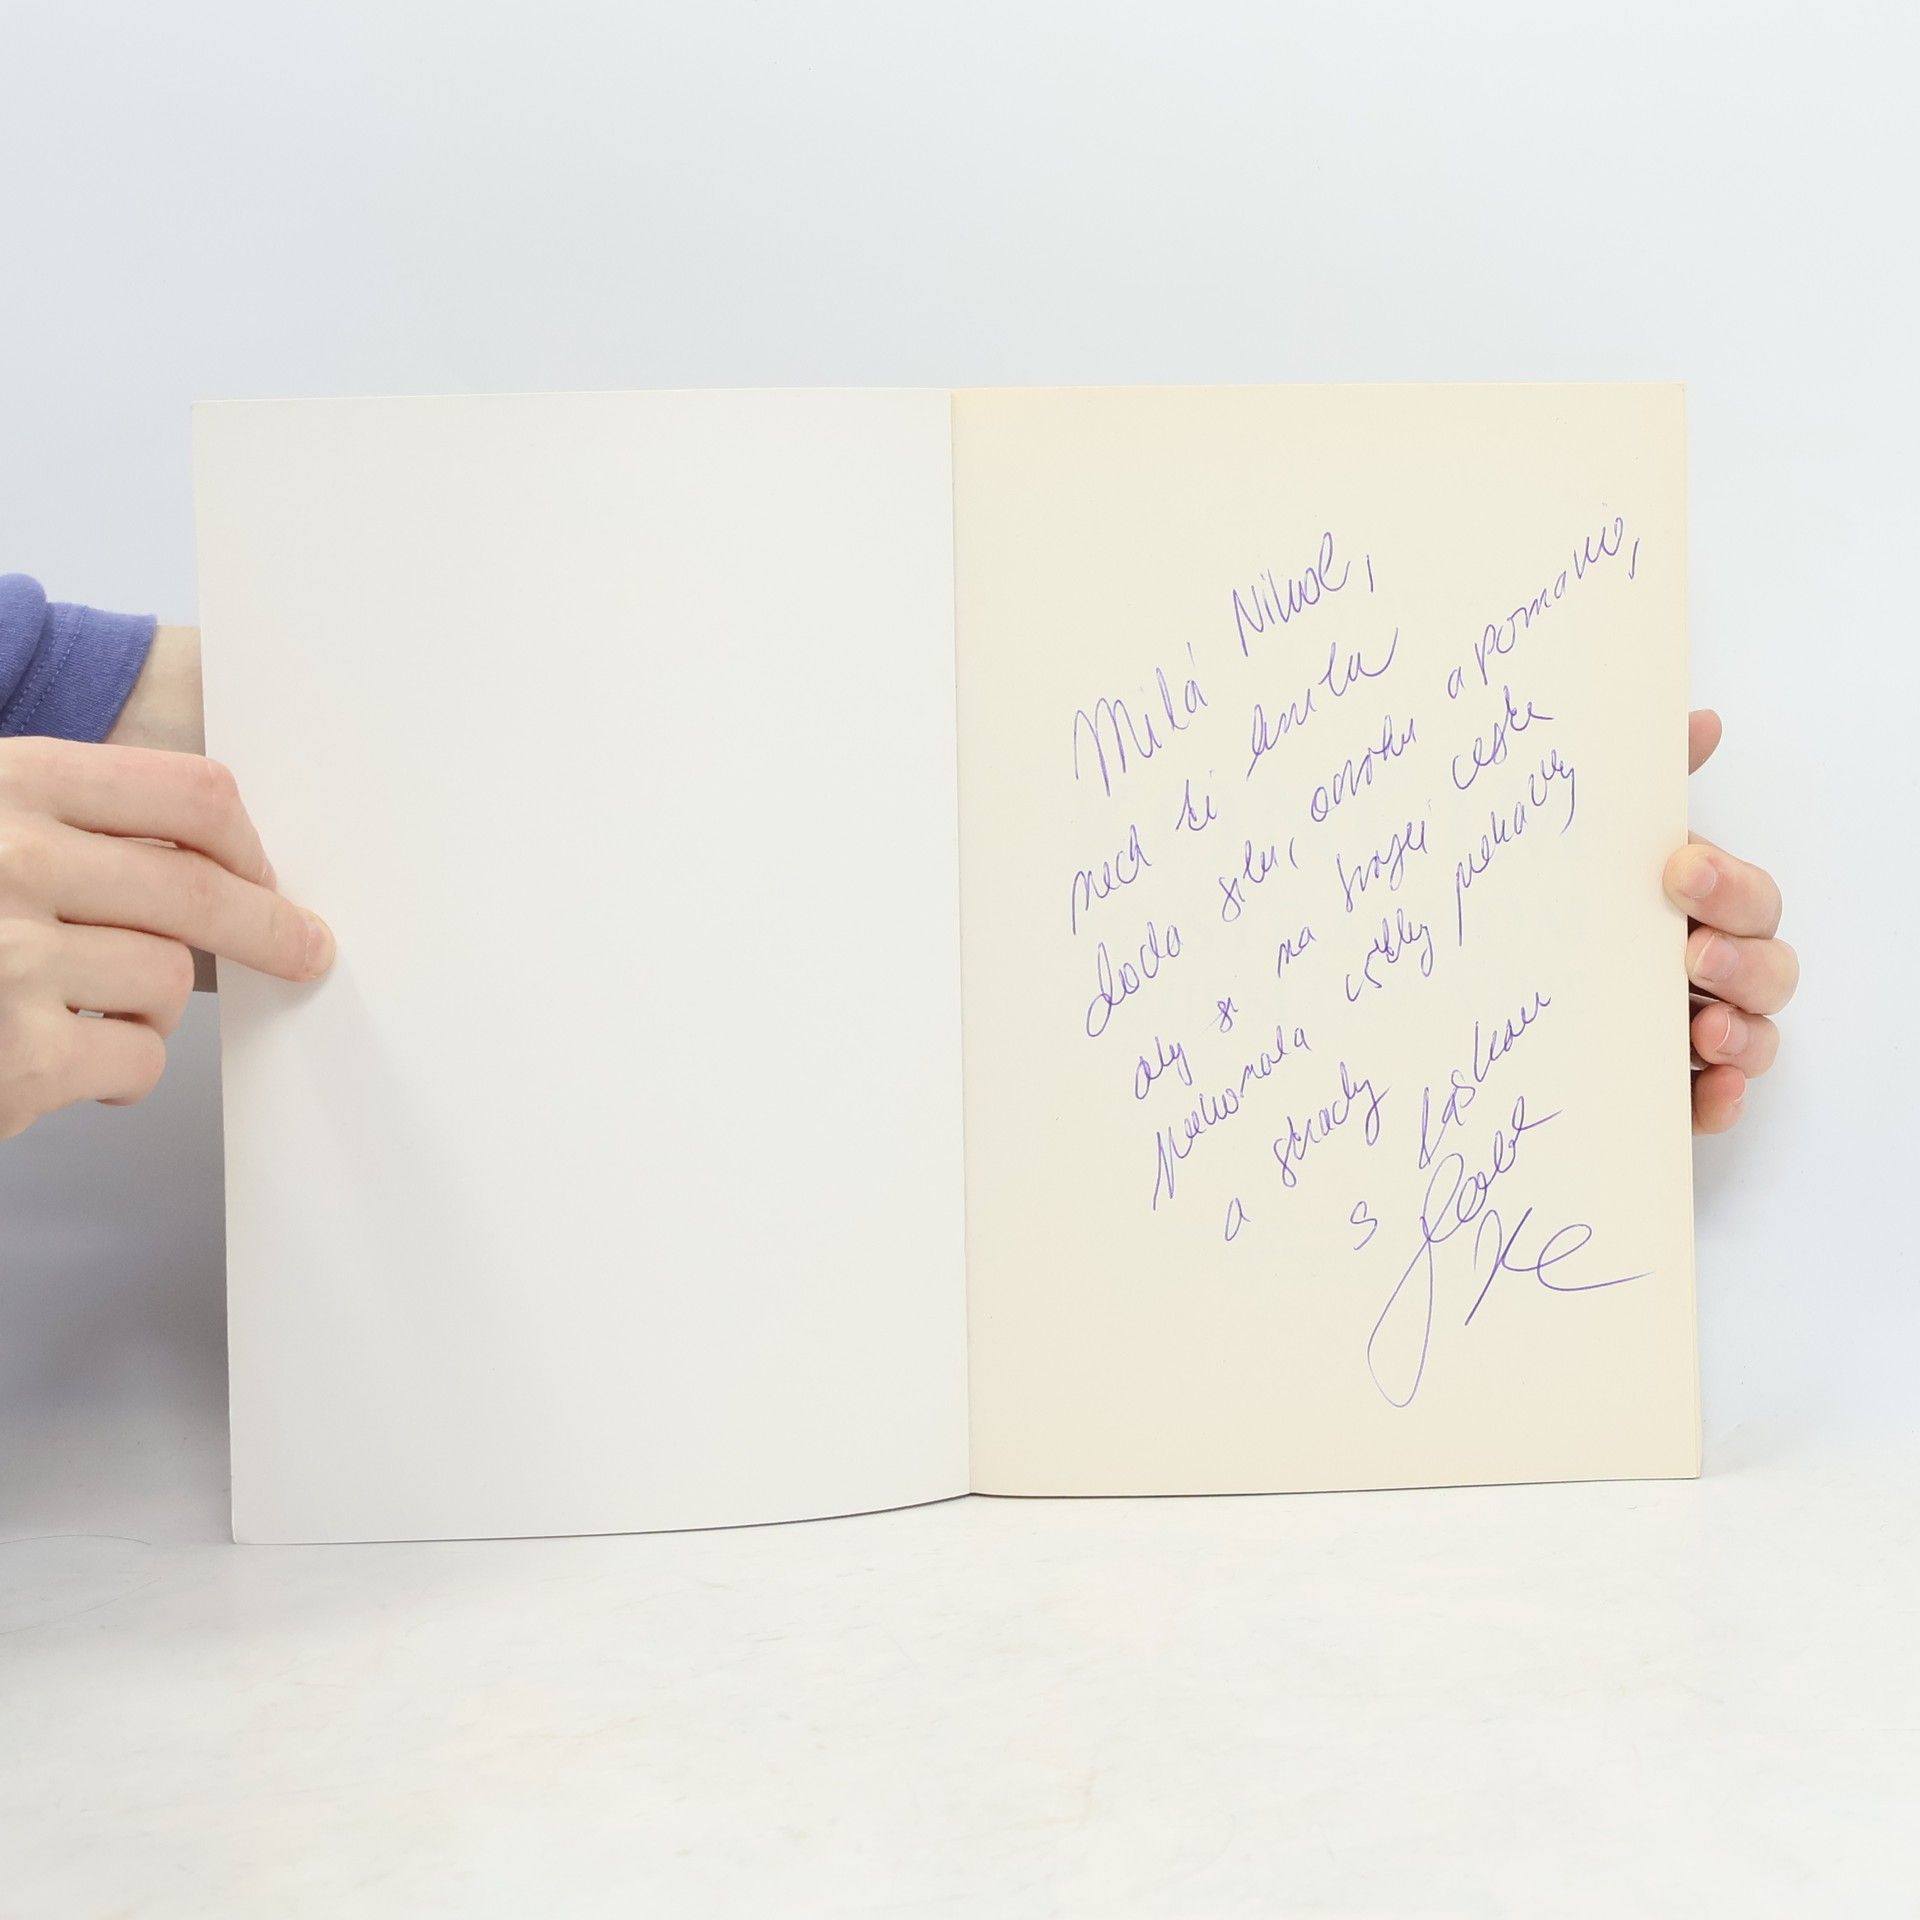 Milá Nikol,
nech ti kniha
dodá silu, odvahu a pomavio,
aby si na svojej ceste
prekonala všetky prekážky
a strachy
s láskou